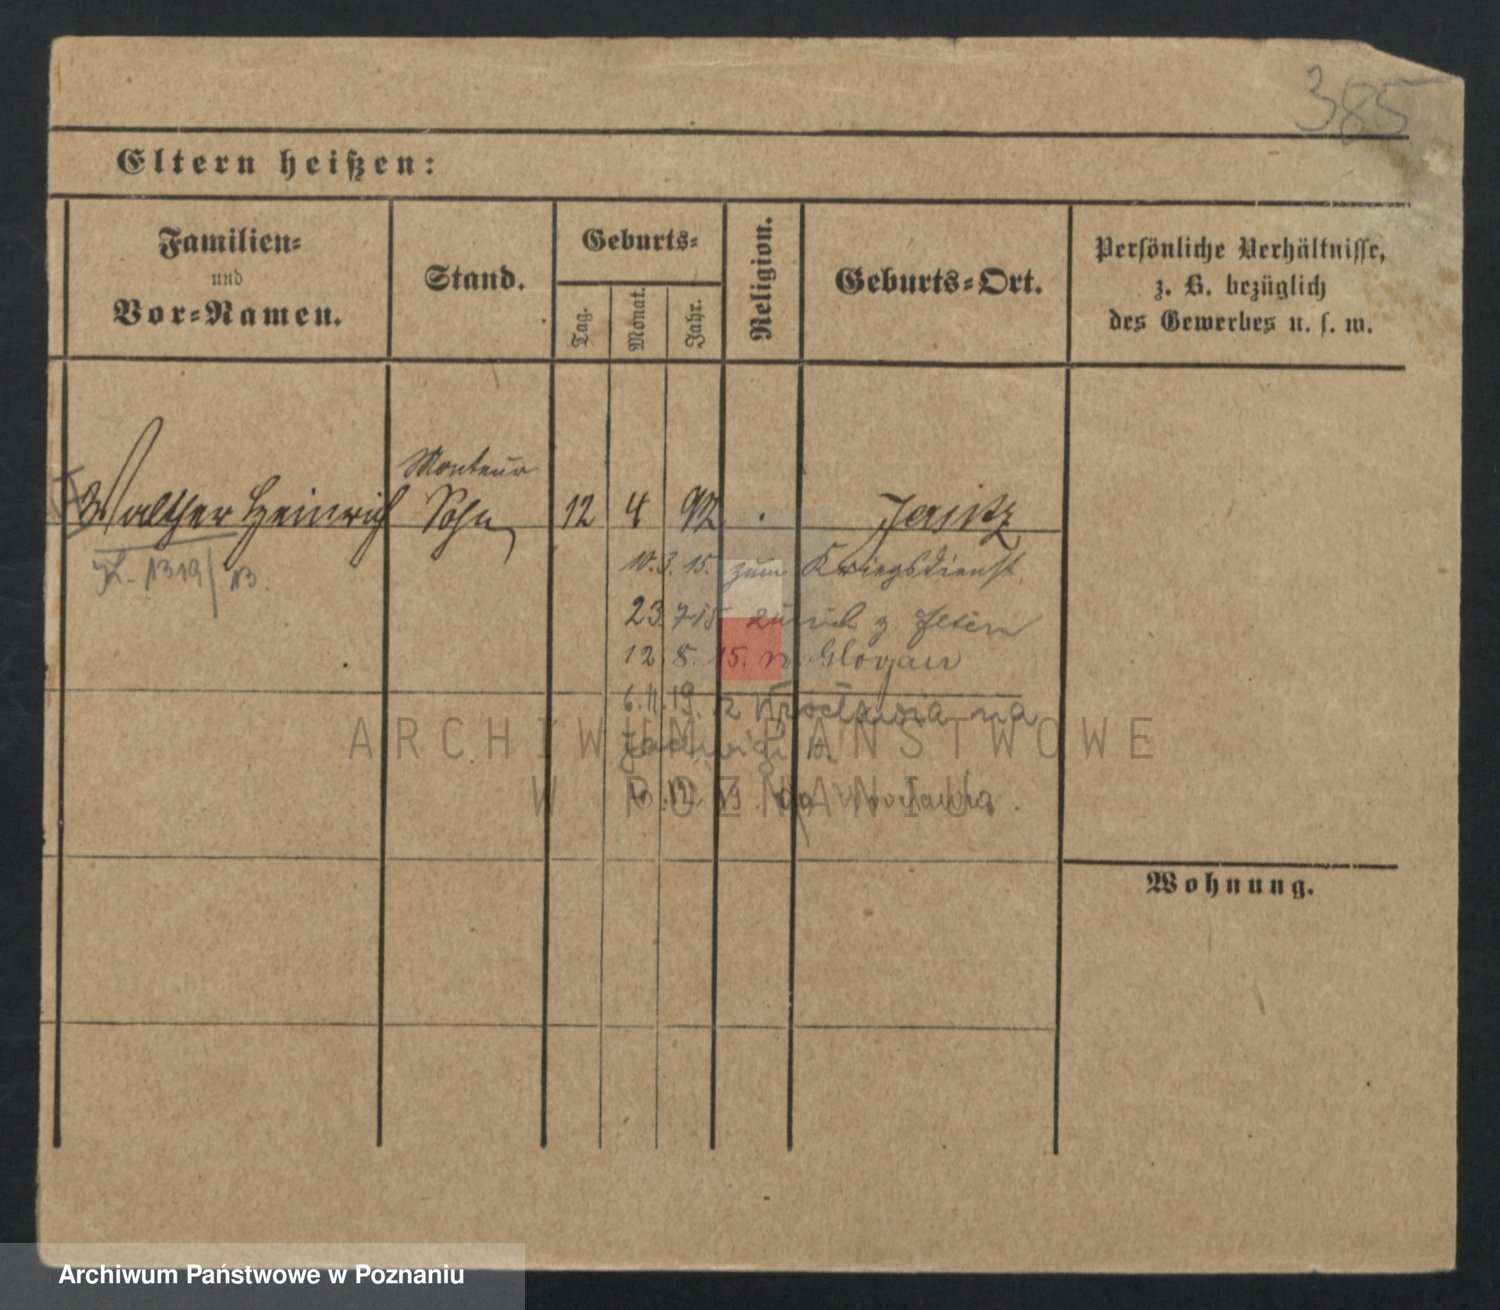 385
Eltern heißen:
Familien-
und
Vor-Namen.
Stand.
Geburts-
Tag.
Monat.
Jahr.
Religion.
Geburts-Ort.
Persönliche Verhältnisse,
z. B. bezüglich
des Gewerbes u. s. w.
Monteur
Walther Heinrich Sohn 12 4 92
1319/13.
10.3.15. zum Kriegsdienst
23.7.15 zurück z. Eltern
12.8.15. n. Glogau
6.11.19. z Wrocławia na
Jadwigi
12 19 do Wrocławia.
Wohnung.
ARCHIWUM PAŃSTWOWE
W POZNANIU
Archiwum Państwowe w Poznaniu